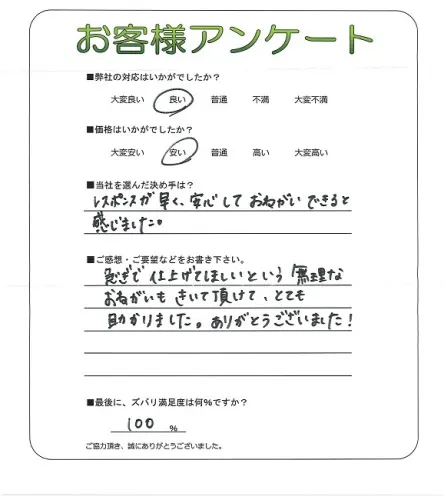 お客様アンケート
■弊社の対応はいかがでしたか？
大変良い 良い 普通 不満 大変不満
■価格はいかがでしたか？
大変安い 安い 普通 高い 大変高い
■当社を選んだ決め手は？
レスポンスが早く、安心しておねがいできると
感じました。
■ご感想・ご要望などをお書き下さい。
急ぎで仕上げてほしいという無理な
おねがいもきいて頂けて、とても
助かりました。ありがとうございました！
■最後に、ズバリ満足度は何%ですか？
100 %
ご協力頂き、誠にありがとうございました。